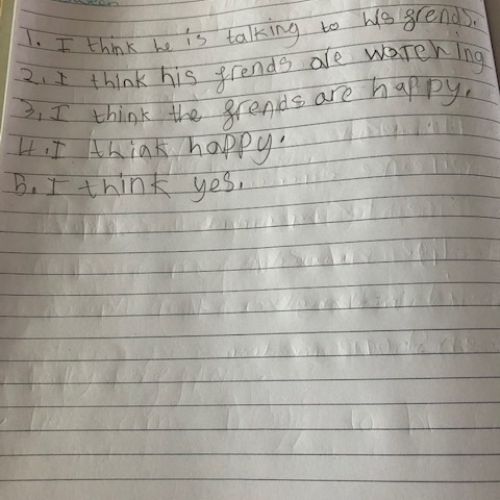 1. I think he is talking to his grends.
2. I think his grends are watching
3. I think the grends are happy.
4. I think happy.
5. I think yes.